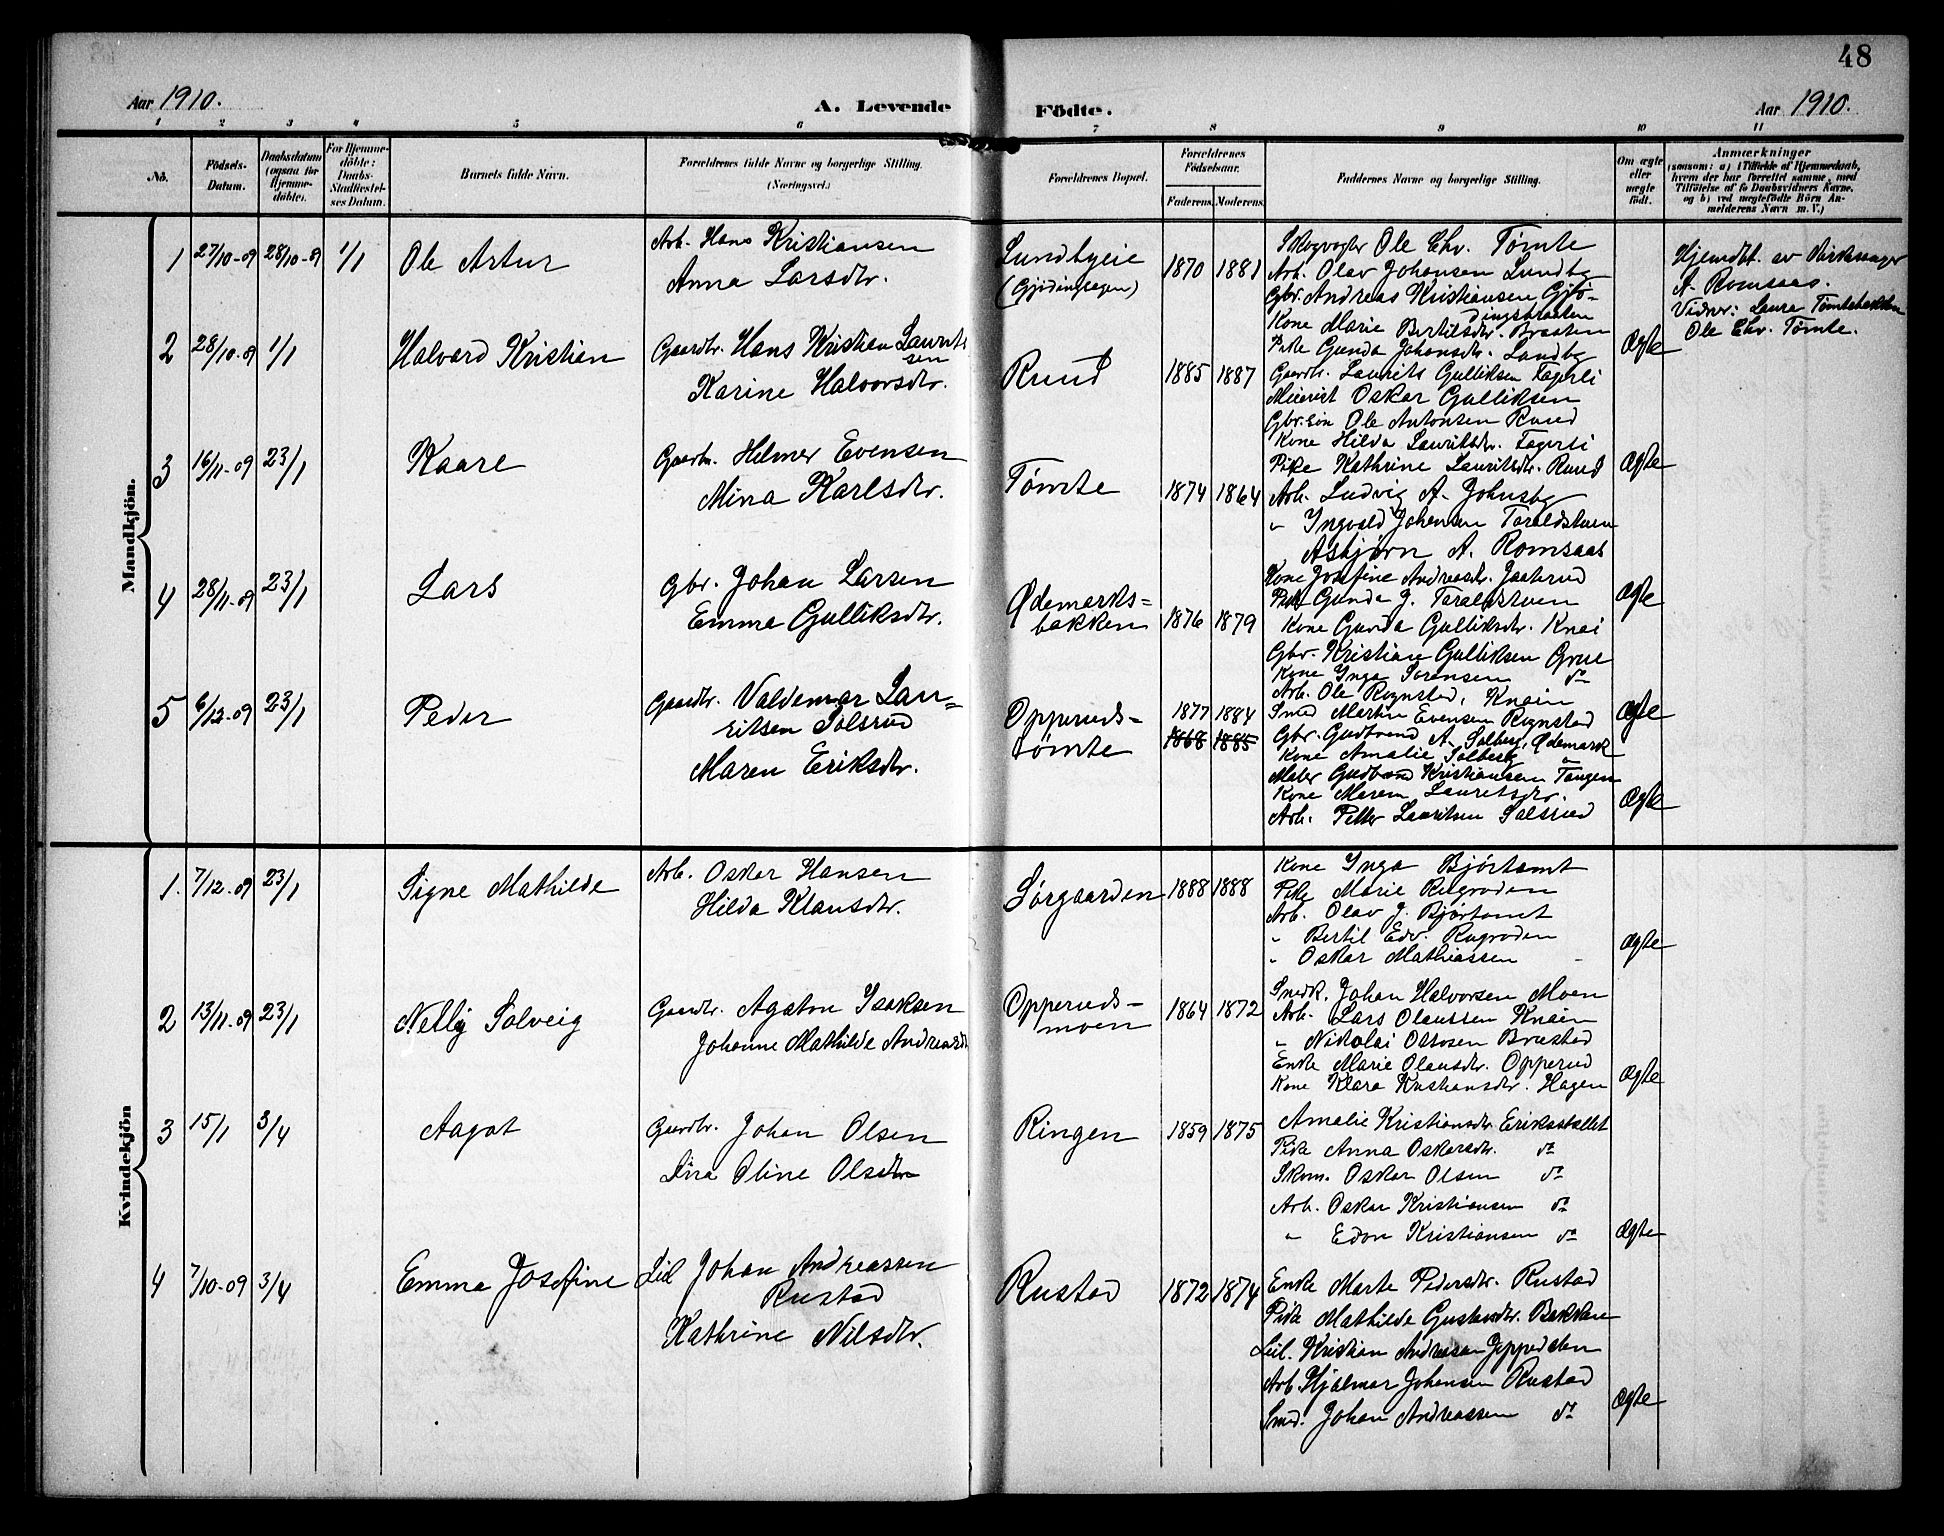 48
Aar 1910. A. Levende Födte. Aar 1910.
1 2 3 4 5 6 7 8 9 10 11
No. Födsels-Datum. Daabsdatum (ogsaa for Hjemmedöbte). For Hjemmedöbte: Daabs-Stadfæstelses Datum. Barnets fulde Navn. Forældrenes fulde Navne og borgerlige Stilling. (Næringsvei.) Forældrenes Bopæl. Forældrenes Födselsaar. Faderens. Moderens. Faddernes Navne og borgerlige Stilling. Om ægte eller uægte födt. Anmærkninger (saasom: a) i Tilfælde af Hjemmedaab, hvem der har forrettet samme, med Tilföielse af to Daabsvidners Navne, og b) ved uægtefödte Börn Anmelderens Navn m. V.)
Mandkjön.
1 27/10-09 28/10-09 1/1 Ole Artur
Arb. Hans Kristiansen
Anna Larsdtr.
Lundbyeie
1870 1881
Skogvogter Ole Chr. Tømte
Arb. Olav Johansen Lundby
Gbr. Andreas Kristiansen Gjø-
dingsbraaten
Kone Marie Bertilsdtr. Braaten
Pike Gunda Johansdtr. Lundby
Ægte
Hjemdbt. av
A. Romsaas.
Vidner: Laura Tømtebakken
Ole Chr. Tømte.
2 28/10-09 1/1 Halvard Kristian
Gaardbr. Hans Kristian Laurit
sen
Karine Halvorsdtr.
Ruud
1885 1887
Gaardbr. Laurits Gulliksen Fagerli
Oskar Gulliksen
Gbr. søn Ole Antonsen Ruud
Kone Hilda Lauritsdtr. Fagerli
Pike Kathrine Lauritsdtr. Ruud
Ægte
3 16/11-09 23/1 Kaare
Gaardbr. Helmer Evensen
Mina Karlsdtr.
Tømte
1874 1864
Arb. Ludvig A. Johnsby
" Ingvald Johansen Taraldstuen
Asbjørn A. Romsaas
Kone Josefine Andreasdtr. Jaaterud
Pike Gunda J. Taraldstuen
Ægte
4 28/11-09 23/1 Lars
Gbr. Johan Larsen
Emma Gulliksdtr.
Ødemarks-
bakken
1876 1879
Kone Gunda Gulliksdtr. Knai
Gbr. Kristian Gulliksen Grue
Kone Inga Sørensen do
Arb. Ole Rognstad, Knain
Smed Martin Evensen Rognstad
Ægte
5 6/12-09 23/1 Peder
Gaardbr. Valdemar Lau-
ritsen Solsrud
Maren Eriksdtr.
Opperuds-
tømte
1877 1884
1868 1885
Gbr. Gudbrand A. Solberg, Ødemark
Kone Amalie Solberg "
Maler Gudbrand Kristiansen Tangen
Kone Maren Lauritsdtr.
Arb. Petter Lauritsen Solsrud
Ægte
Kvindekjön
1. 7/12-09 23/1 Signe Mathilde
Arb. Oskar Hansen
Hilda Klausdtr.
Sørgaarden
1888 1888
Kone Inga Bjørtomt
Pike Marie Rugroden
Arb. Olav J. Bjørtomt
" Bertil Edv. Rugroden
" Oskar Mathiassen
Ægte
2 13/11-09 23/1 Nelly Solveig
Gaardbr. Agaton Isaksen
Johanne Mathilde Andreasdtr
Opperuds-
moen
1864 1872
Snedk. Johan Halvorsen Moen
Arb. Lars Olaussen Knain
" Nikolai Ottosen Brustad
Enke Marie Olausdtr. Opperud
Kone Klara Kristiansdtr. Hagen
Ægte
3 15/1 3/4 Aagot
Gaardbr. Johan Olsen
Oline Olsdtr
Ringen
1859 1875
Amalie Kristiansdtr. Eriksstallet
Pike Anna Oskarsdtr. do
Skom. Oskar Olsen do
Arb. Oskar Kristiansen do
" Edvn Kristiansen do
Ægte
4 7/10-09 3/4 Emma Josefine
Leil Johan Andreassen
Rustad
Kathrine Nilsdtr.
Rustad
1872 1874
Enke Marte Pedersdtr. Rustad
Pike Mathilde Gustavsdtr. Bakken
Leil. Kristian Andreassen
Arb. Hjalmar Johansen Rustad
Smed. Johan Andreassen do
Ægte